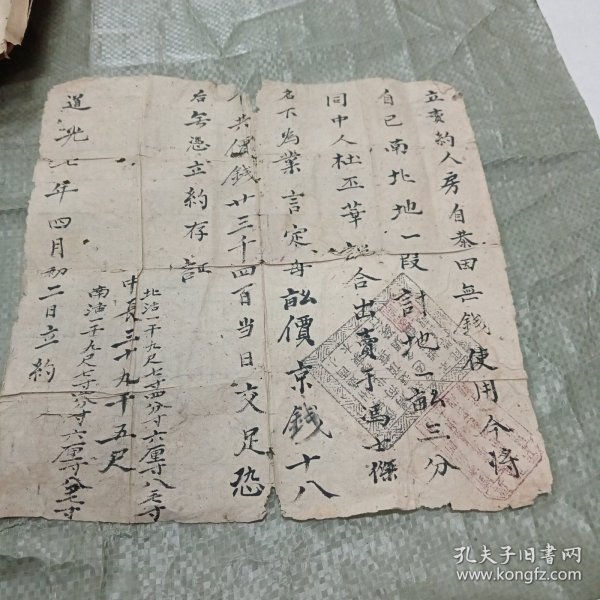 立賣約人房自恭因無錢使用今將
自已南北地一段計地一畝三分
同中人杜丕華說合出賣于馬士傑
名下為業言定每畝價京錢十八
千共價錢廿三千四百当日交足恐
后無憑立約存証
北活一干九尺七寸四分六厘八毛
中長三十九干五尺
南活一干九尺七寸
道光七年四月初二日立約
孔夫子旧書网
www.kongfz.com